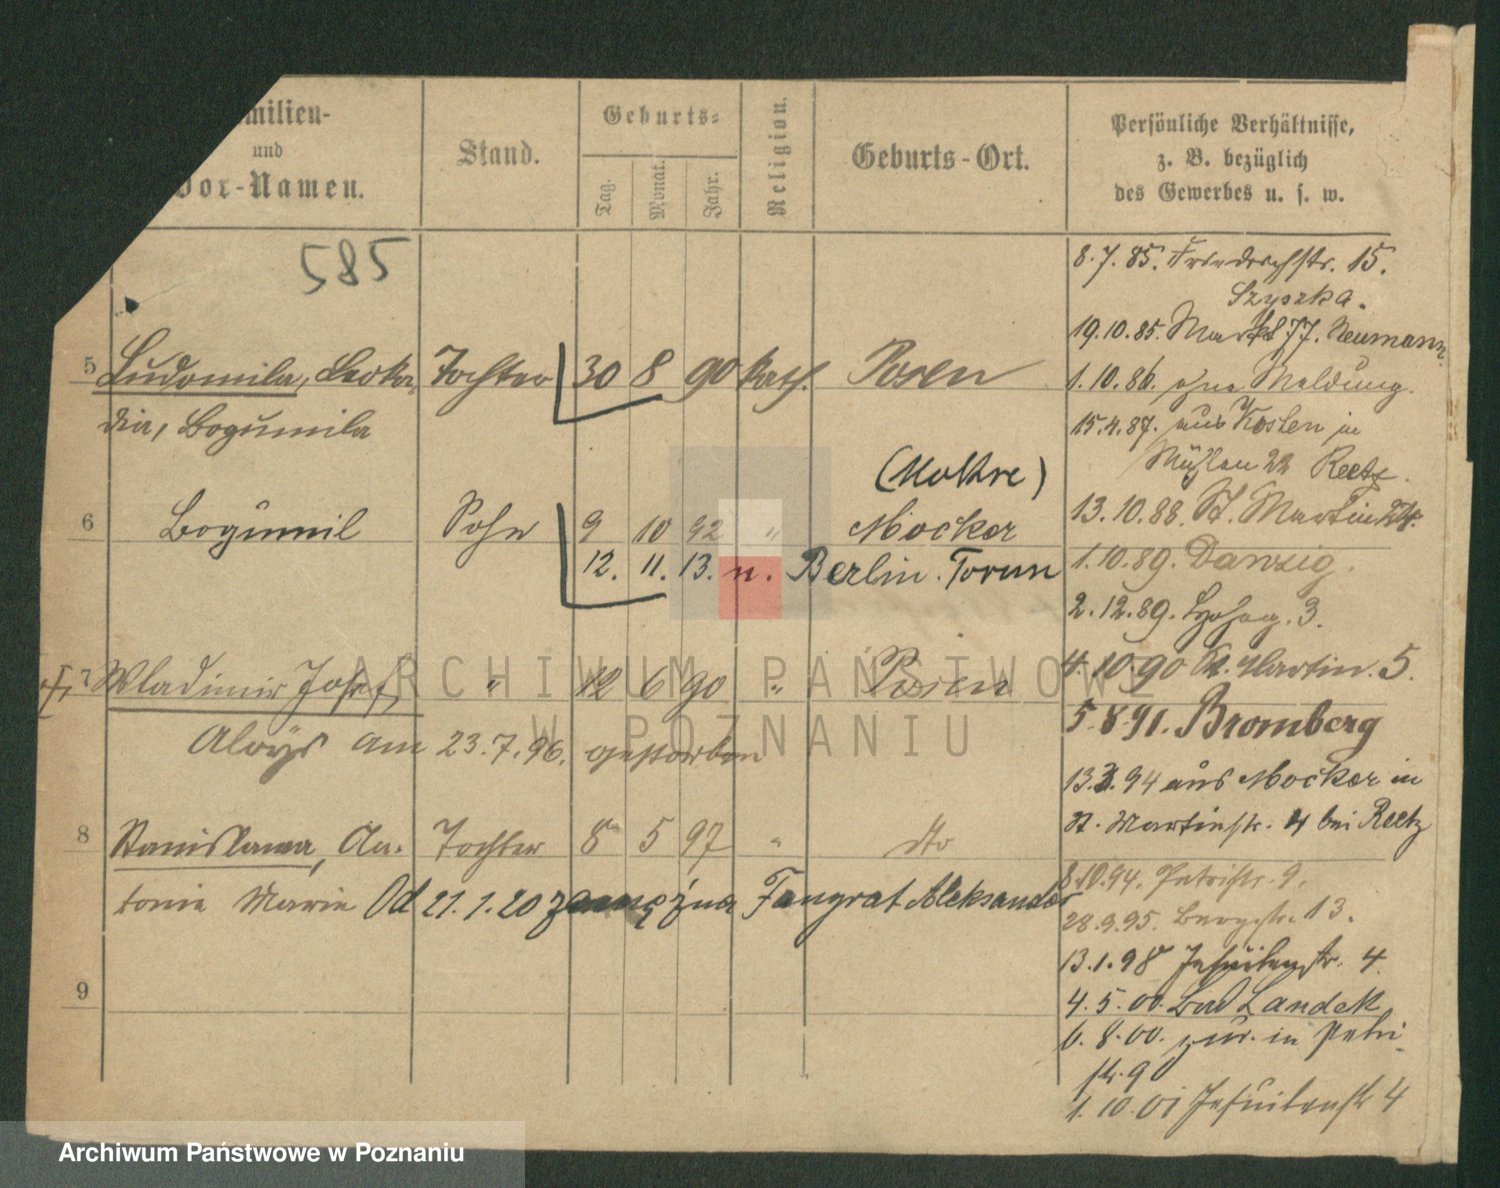 milien-
und
Vor-Namen.
Stand.
Geburts-
Tag.
Monat.
Jahr.
Religion.
Geburts-Ort.
Persönliche Verhältnisse,
z. B. bezüglich
des Gewerbes u. s. w.
585
8.7.85. Friedrichstr. 15.
Szyszka.
19.10.85. Markt 77. Neumann
5 Ludomila, Leoka- Tochter 30 8 90 kath. Posen
1.10.86. ohne Meldung.
dia, Bogumila
15.4.87. aus Kosten in
Mühlen 22 Reetz.
(Mokre)
6 Bogumil Sohn 9 10 92 " Mocker
13.10.88. St. Martin 24.
12. 11. 13. n. Berlin. Torun
1.10.89. Danzig.
2.12.89. 3.
7 Wladimir Josef " 12 6 90 " Posen
4.10.90 St. Martin. 5.
Aloys am 23.7.96. gestorben
5.8.91. Bromberg
13.3.94 aus Mocker in
St. Martinstr. 4 bei Reetz
8 Stanislawa, An- Tochter 8 5 97 " dto
8.10.94. Petristr. 9.
tonie Marie Od 21.1.20 zamężna Fangrat Aleksander
28.9.95. Bergstr. 13.
13.1.98 Jesuitenstr. 4
9
4.5.00. Bad Landek
6.8.00. zur. in Petri-
str. 9
1.10.01 Jesuitenstr 4
ARCHIWUM PAŃSTWOWE
W POZNANIU
Archiwum Państwowe w Poznaniu